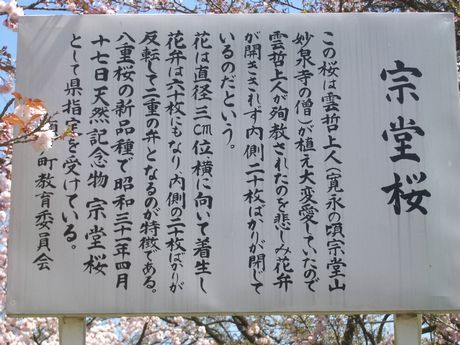 宗堂桜
この桜は雲哲上人（寛永の頃宗堂山
妙泉寺の僧）が植え大変愛していたので
雲哲上人が殉教されたのを悲しみ花弁
が開ききれず内側二十枚ばかりが閉じて
いるのだという。
花は直径三cm位横に向いて着生し
花弁は六十枚にもなり内側の二十枚ばかりが
反転して二重の弁となるのが特徴である。
八重桜の新品種で昭和三十一年四月
十七日天然記念物 宗堂桜
として県指定を受けている。
町教育委員会